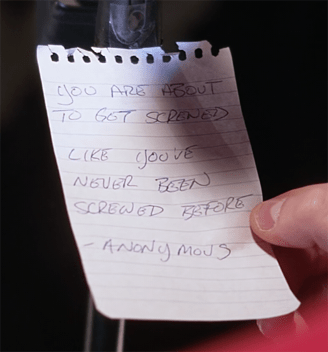 YOU ARE ABOUT
TO GET SCREWED
LIKE YOU'VE
NEVER BEEN
SCREWED BEFORE
- ANONYMOUS